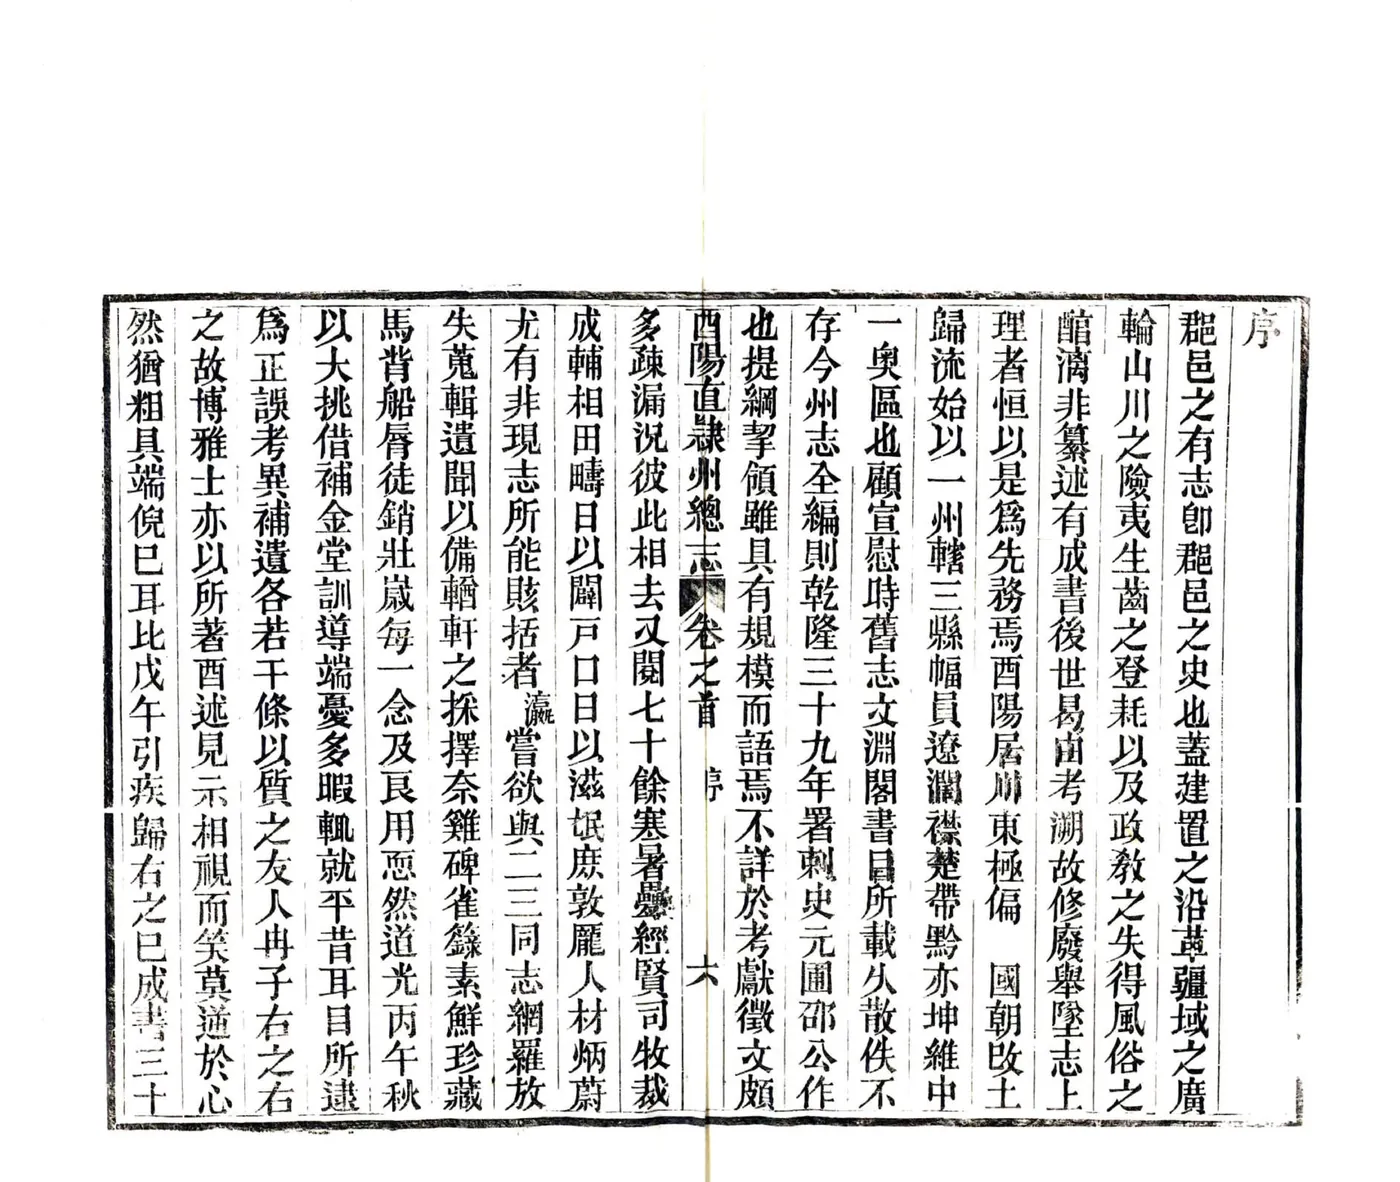 序
郡邑之有志卽郡邑之史也蓋建置之沿革疆域之廣
輪山川之險夷生齒之登耗以及政敎之失得風俗之
醇漓非纂述有成書後世曷由考溯故修廢舉墜志上
理者恒以是爲先務焉酉陽居川東極偏　國朝改土
歸流始以一州轄三縣幅員遼濶襟楚帶黔亦坤維中
一奧區也顧宣慰時舊志文淵閣書目所載久散佚不
存今州志全編則乾隆三十九年署刺史元圃邵公作
也提綱挈領雖具有規模而語焉不詳於考獻徵文頗
酉陽直隸州總志　卷之首　序　六
多疎漏況彼此相去又閱七十餘寒暑疊經賢司牧裁
成輔相田疇日以闢戸口日以滋氓庶敦龐人材炳蔚
尤有非現志所能賅括者瀛嘗欲與二三同志網羅放
失蒐輯遺聞以備輶軒之採擇奈雞碑雀籙素鮮珍藏
馬背船脣徒銷壯歲每一念及良用恧然道光丙午秋
以大挑借補金堂訓導端憂多暇輒就平昔耳目所逮
爲正誤考異補遺各若干條以質之友人冉子右之右
之故博雅士亦以所著酉述見示相視而笑莫逆於心
然猶粗具端倪已耳比戊午引疾歸右之已成書三十